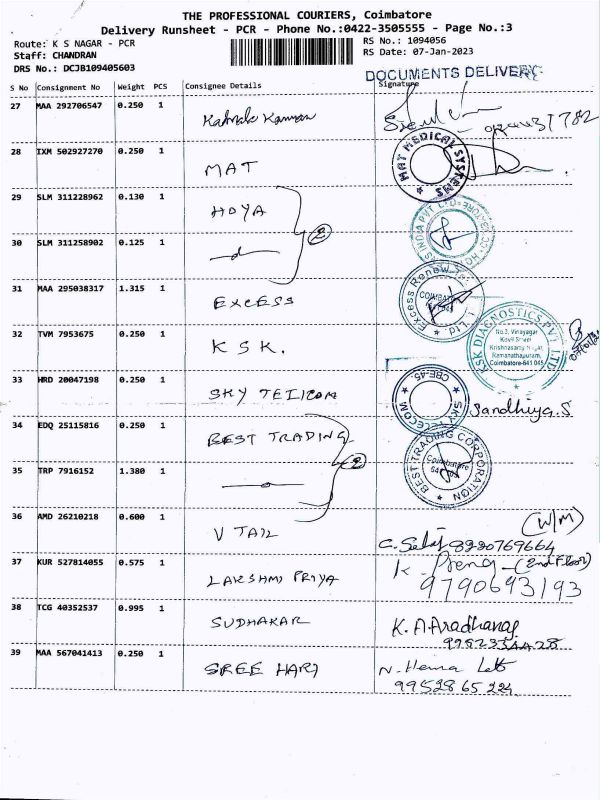 THE PROFESSIONAL COURIERS, Coimbatore
Delivery Runsheet - PCR - Phone No.:0422-3505555 - Page No.:3
Route: K S NAGAR - PCR
RS No.: 1094056
Staff: CHANDRAN
RS Date: 07-Jan-2023
DRS No.: DCJB109405603
DOCUMENTS DELIVERY
S No Consignment No Weight PCS Consignee Details Signature
27 MAA 292706547 0.250 1
28 IXM 502927270 0.250 1 MAT
MAT MEDICAL SYSTEMS
29 SLM 311228962 0.130 1 HOYA
INDIA PVT LTD
30 SLM 311258902 0.125 1
2
31 MAA 295038317 1.315 1 EXCESS
Excess Renew
32 TVM 7953675 0.250 1 KSK.
KSK DIAGNOSTICS PVT LTD
No.3, Vinayagar
Kovil Street
Krishnasamy Nagar,
Ramanathapuram,
Coimbatore-641 045
33 HRD 20047198 0.250 1 SKY TELICOM
SKY TELECOM CBE-45
Sandhiya.S
34 EDQ 25115816 0.250 1 BEST TRADING
BEST TRADING CORPORATION
Coimbatore
35 TRP 7916152 1.380 1
2
36 AMD 26210218 0.600 1 V TAIL
(W/M)
8220769664
37 KUR 527814055 0.575 1 LAKSHMI PRIYA
(2nd Floor)
9790693193
38 TCG 40352537 0.995 1 SUDHAKAR
K. A Aradhanaj
39 MAA 567041413 0.250 1 SREE HARI
N. Hema
9952865224